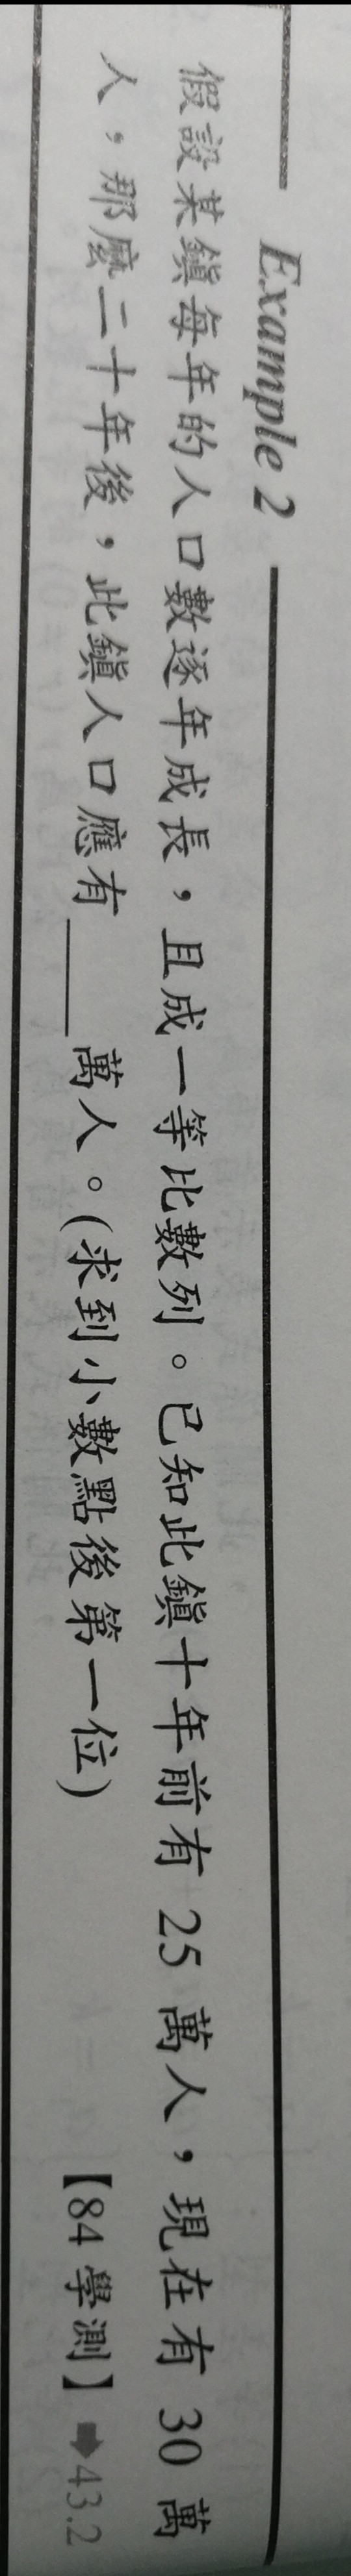 Example 2
假設某鎮每年的人口數逐年成長，且成一等比數列。已知此鎮十年前有 25 萬人，現在有 30 萬
人，那麼二十年後，此鎮人口應有____萬人。(求到小數點後第一位)【84 學測】➡43.2